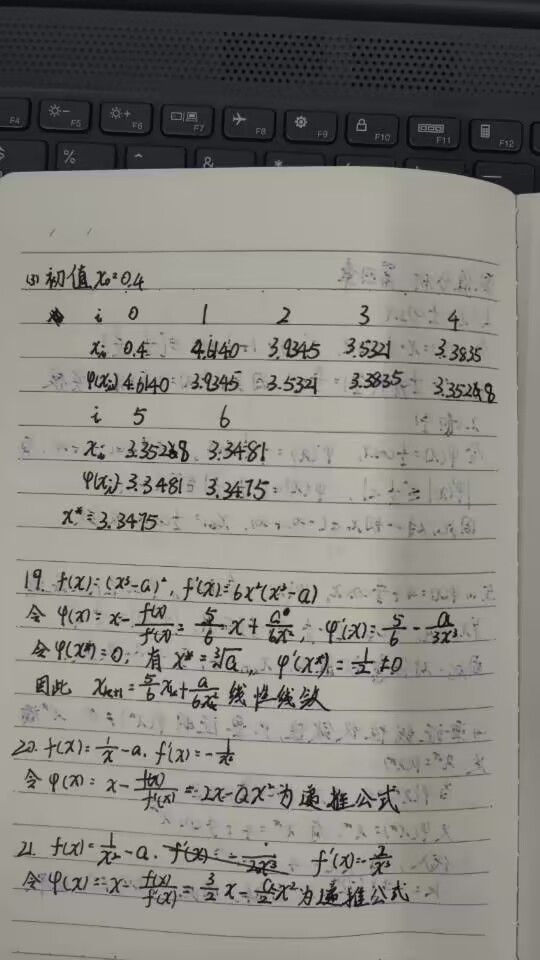 F4 F5 F6 F7 F8 F9 F10 F11 F12
$ % ^ & *
(3) 初值 x₀=0.4
i 0 1 2 3 4
xᵢ 0.4 4.6140 3.9345 3.5321 3.3835
φ(xᵢ) 4.6140 3.9345 3.5321 3.3835 3.3528
i 5 6
xᵢ 3.3528 3.3481
φ(xᵢ) 3.3481 3.3475
x*=3.3475
19. f(x)=(x³-a)², f'(x)=6x²(x³-a)
令 φ(x)=x-f(x)/f'(x)=5/6 x+a/6x², φ'(x)=5/6-a/3x³
令 φ(x*)=0, 有 x*=³√a, φ'(x*)=1/2≠0
因此 xₖ₊₁=5/6 xₖ+a/6xₖ² 线性线敛
20. f(x)=1/x-a. f'(x)=-1/x²
令 φ(x)=x-f(x)/f'(x)=2x-ax² 为递推公式
21. f(x)=1/x²-a. f'(x)=-2/x³
令 φ(x)=x-f(x)/f'(x)=3/2 x-a/2 x² 为递推公式